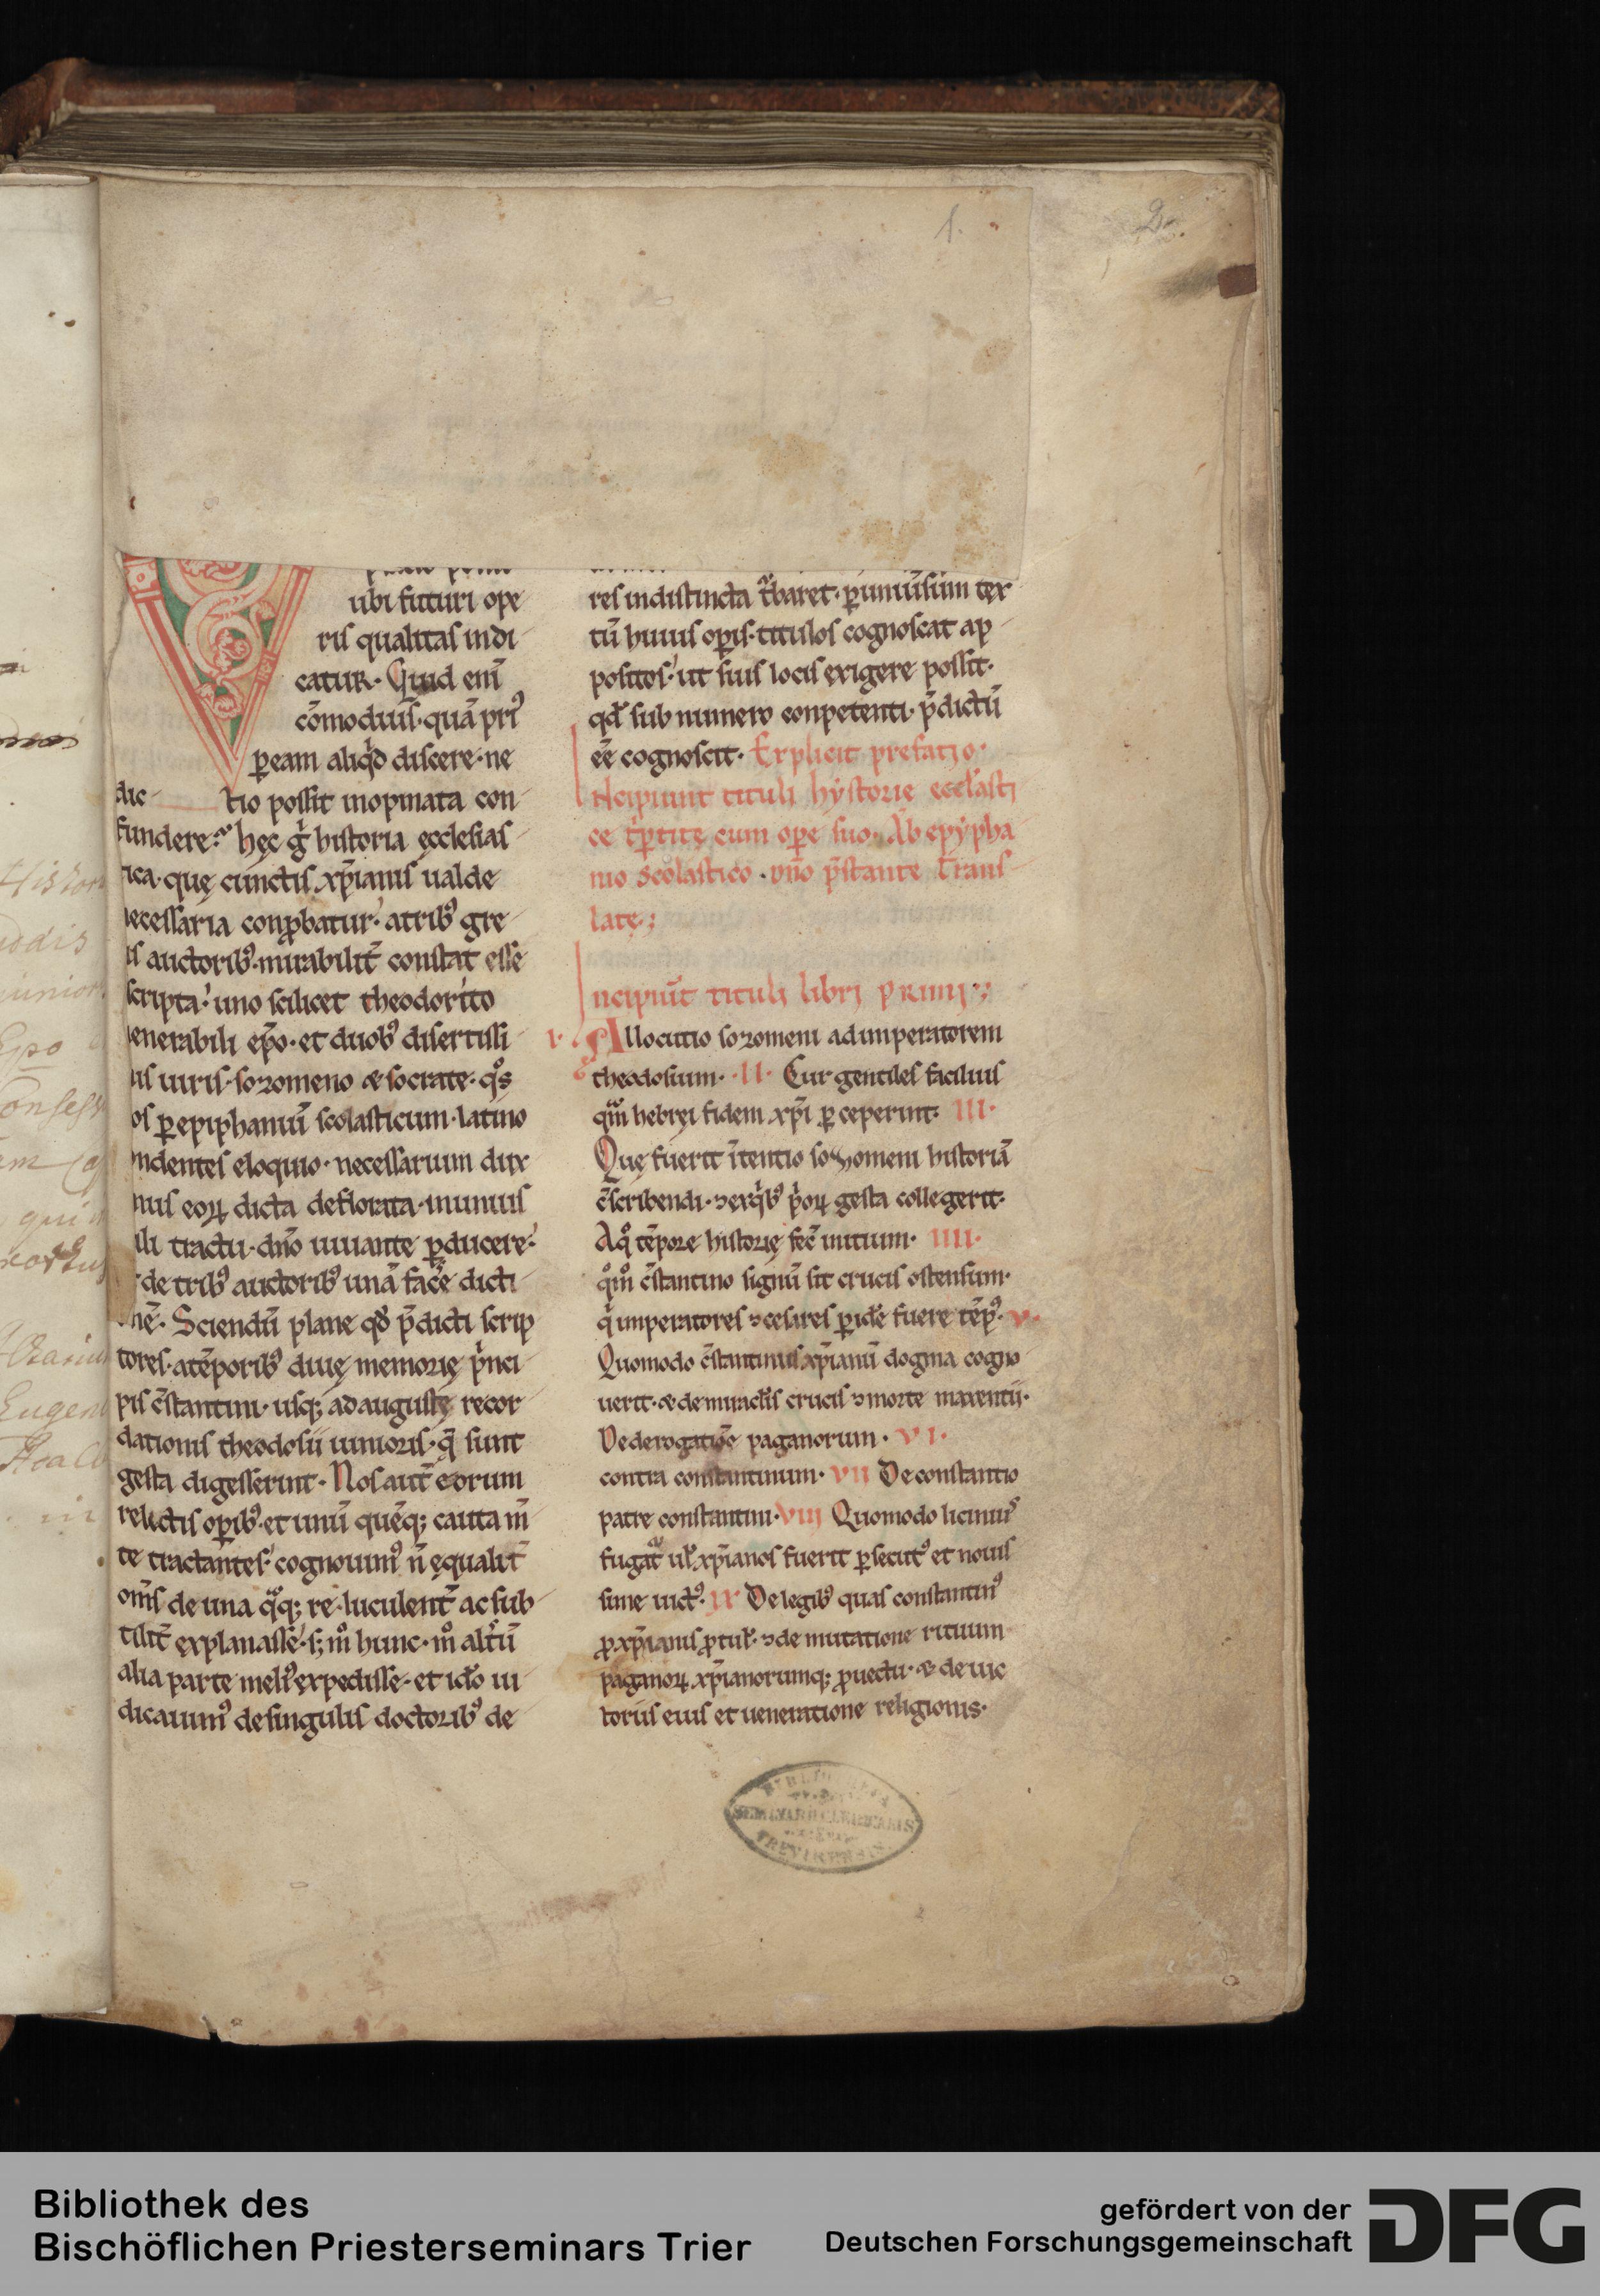 1.
2.
ubi futuri ope
ris qualitas indi
catur. Quid eni̅
co̅moduis̅. qua̅ pri⁹
ꝑeam aliqͥd discere. ne
dic tio possit inopinata con
fundere. hęc gͥ historia ęcclesias
ica. quę cunctis xp̅ianis ualde
ecessaria conꝓbatur. atrib⁹ gre
is auctorib⁹. mirabilit̅ constat esse
scripta. uno scilicet theodorito
enerabili ep̅o. et duob⁹ disertissi
is uiris. sozomeno & socrate. qͦs
os ꝑ epiphaniu̅ scolasticum. latino
ndentes eloquio. necessarium dux
mus eoꝝ dicta deflorata. inunius
ili tractu. dn̅o iuuante ꝑducere.
de trib⁹ auctorib⁹ una̅ fac̅e dicti
nē. Sciendu̅ plane qd̅ p̅dicti scrip
tores. ate̅porib⁹ diuę memorię pͥnci
pis c̅stantini. usq; ad augustę recor
dationis theodosii iunioris. q̅ sunt
gesta digesserint. Nos aut̅ eorum
relectis oꝑib⁹. et unu̅ que̅q; cauta m̅
te tractantes. cognouim⁹ n̅ ęqualit̅
om̅s de una qͣq; re. luculent̅ ac sub
tilit̅ explanasse. s; mͦ hunc. mͦ alt̅u̅
alia parte meli⁹ expedisse. et id̅o iu
dicauim⁹ de singulis doctorib⁹ de
res indistincta tͬbaret. ꝑ uniu̅sum tex
tu̅ huius oꝑis. titulos cognoscat ap
positos. ut suis locis exigere possit.
qd̅ sub numero conpetenti. p̅dictu̅
ee̅ cognoscit. Explicit prefatio.
Incipiunt tituli hystorie eccl̅asti
ce tͥꝑtitę cum oꝑe suo. Ab epypha
nio scolastico. dn̅o p̅stante Trans
latę;
Incipiu̅t tituli libri primi;
I. Allocutio sozomeni ad imperatorem
theodosium. II. Cur gentiles facilius
qͣm hebręi fidem xp̅i ꝑceperint. III.
Quę fuerit i̅tentio sozomeni historia̅
c̅scribendi. ⁊ exqͥb⁹ pͥoꝝ gesta collegerit.
Aqͦ te̅pore historię fec̅ initium. IIII.
qͦmͦ c̅stantino signu̅ sit crucis ostensum.
qͥ imperatores ⁊ cesares ꝑ ide̅ fuere te̅p⁹. V.
Quomodo c̅stantinus xp̅ianu̅ dogma cogno
uerit. & de miracl̅is crucis ⁊ morte maxentii.
De derogatio̅e paganorum. VI.
contra constantinum. VII De constantio
patre constantini. VIII Quomodo licini⁹
fugat⁹ ul̅ xp̅ianos fuerit ꝑsecut⁹ et nouis
sime uict⁹. IX De legib⁹ quas constantin⁹
ꝓ xp̅ianis ꝓtul̅. ⁊ de mutatione rituum
paganoꝝ xp̅ianorumq; ꝓuectu. & de uic
toriis eius et ueneratione religionis.
SEMINARII CLERICALIS
TREVIRENSIS
Bibliothek des
Bischöflichen Priesterseminars Trier
gefördert von der
Deutschen Forschungsgemeinschaft
DFG